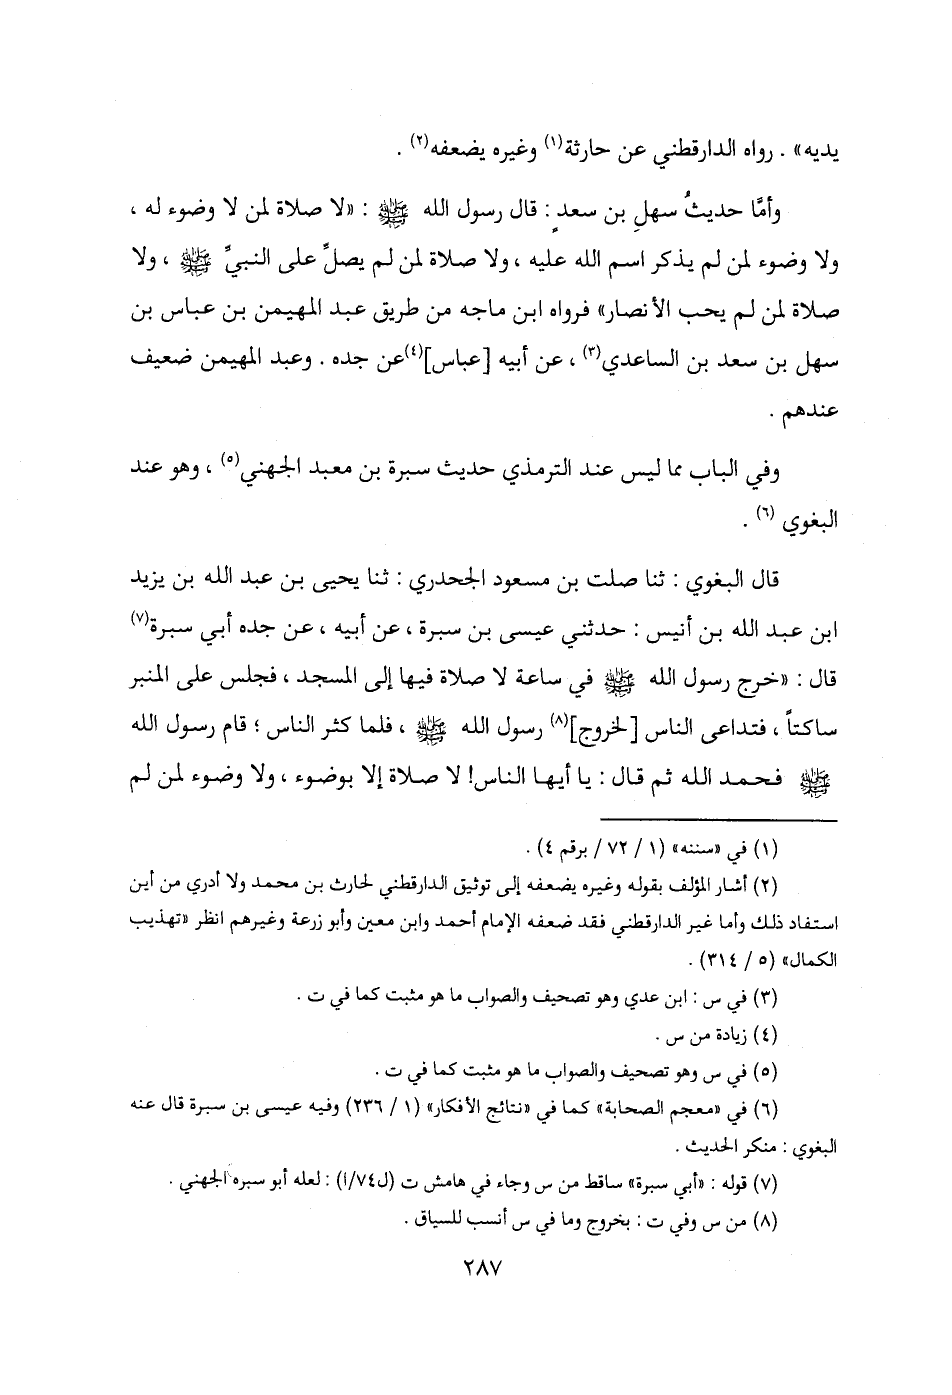 يديه» . رواه الدارقطني عن حارثة(١) وغيره يضعفه(٢) .
وأمَّا حديثُ سهلِ بن سعدٍ : قال رسول الله ﷺ : «لا صلاة لمن لا وضوء له ،
ولا وضوء لمن لم يذكر اسم الله عليه ، ولا صلاة لمن لم يصلِّ على النبيِّ ﷺ ، ولا
صلاة لمن لم يحب الأنصار» فرواه ابن ماجه من طريق عبد المهيمن بن عباس بن
سهل بن سعد بن الساعدي(٣) ، عن أبيه [عباس](٤)عن جده . وعبد المهيمن ضعيف
عندهم .
وفي الباب مما ليس عند الترمذي حديث سبرة بن معبد الجهني(٥) ، وهو عند
البغوي (٦) .
قال البغوي : ثنا صلت بن مسعود الجحدري : ثنا يحيى بن عبد الله بن يزيد
ابن عبد الله بن أنيس : حدثني عيسى بن سبرة ، عن أبيه ، عن جده أبي سبرة(٧)
قال : «خرج رسول الله ﷺ في ساعة لا صلاة فيها إلى المسجد ، فجلس على المنبر
ساكتاً ، فتداعى الناس [لخروج](٨) رسول الله ﷺ ، فلما كثر الناس ؛ قام رسول الله
ﷺ فحمد الله ثم قال : يا أيها الناس! لا صلاة إلا بوضوء ، ولا وضوء لمن لم
(١) في «سننه» (١ / ٧٢ / برقم ٤) .
(٢) أشار المؤلف بقوله وغيره يضعفه إلى توثيق الدارقطني لحارث بن محمد ولا أدري من أين
استفاد ذلك وأما غير الدارقطني فقد ضعفه الإمام أحمد وابن معين وأبو زرعة وغيرهم انظر «تهذيب
الكمال» (٥ / ٣١٤) .
(٣) في س : ابن عدي وهو تصحيف والصواب ما هو مثبت كما في ت .
(٤) زيادة من س .
(٥) في س وهو تصحيف والصواب ما هو مثبت كما في ت .
(٦) في «معجم الصحابة» كما في «نتائج الأفكار» (١ / ٢٣٦) وفيه عيسى بن سبرة قال عنه
البغوي : منكر الحديث .
(٧) قوله : «أبي سبرة» ساقط من س وجاء في هامش ت (ل٧٤/أ) : لعله أبو سبره الجهني .
(٨) من س وفي ت : بخروج وما في س أنسب للسياق .
٢٨٧